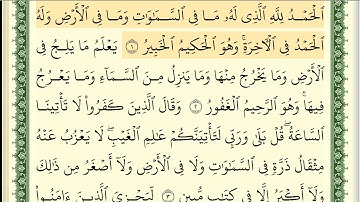 ٱلْحَمْدُ لِلَّهِ ٱلَّذِى لَهُۥ مَا فِى ٱلسَّمَٰوَٰتِ وَمَا فِى ٱلْأَرْضِ وَلَهُ
ٱلْحَمْدُ فِى ٱلْءَاخِرَةِ ۚ وَهُوَ ٱلْحَكِيمُ ٱلْخَبِيرُ ١ يَعْلَمُ مَا يَلِجُ فِى
ٱلْأَرْضِ وَمَا يَخْرُجُ مِنْهَا وَمَا يَنزِلُ مِنَ ٱلسَّمَآءِ وَمَا يَعْرُجُ
فِيهَا ۚ وَهُوَ ٱلرَّحِيمُ ٱلْغَفُورُ ٢ وَقَالَ ٱلَّذِينَ كَفَرُوا۟ لَا تَأْتِينَا
ٱلسَّاعَةُ ۖ قُلْ بَلَىٰ وَرَبِّى لَتَأْتِيَنَّكُمْ عَٰلِمِ ٱلْغَيْبِ ۖ لَا يَعْزُبُ عَنْهُ
مِثْقَالُ ذَرَّةٍ فِى ٱلسَّمَٰوَٰتِ وَلَا فِى ٱلْأَرْضِ وَلَآ أَصْغَرُ مِن ذَٰلِكَ
وَلَآ أَكْبَرُ إِلَّا فِى كِتَٰبٍ مُّبِينٍ ٣ لِّيَجْزِىَ ٱلَّذِينَ ءَامَنُوا۟